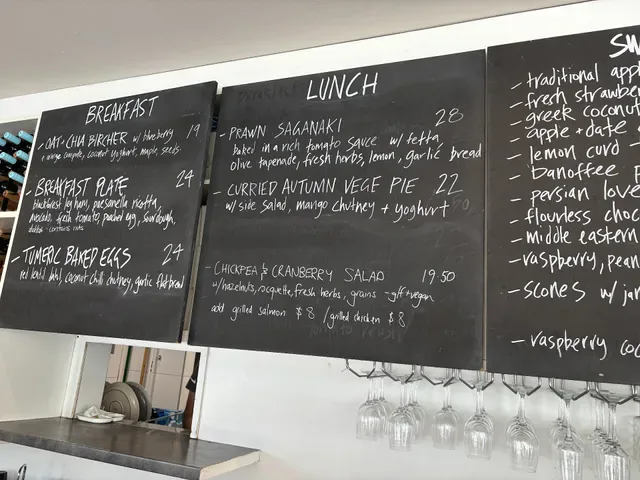 BREAKFAST
- OAT-CHIA BIRCHER w/ blueberry 19
+ orange compote, coconut yoghurt, maple, seeds.
- BREAKFAST PLATE 24
ricotta,
avocado, fresh tomato, poached egg, sourdough,
dukkah - contains nuts
- TUMERIC BAKED EGGS 24
red lentil dahl, coconut chilli chutney, garlic flatbread
LUNCH
- PRAWN SAGANAKI 28
baked in a rich tomato sauce w/ fetta,
olive tapenade, fresh herbs, lemon, garlic bread
- CURRIED AUTUMN VEGE PIE 22
w/ side salad, mango chutney + yoghurt
- CHICKPEA & CRANBERRY SALAD 19.50
w/ hazelnuts, rocquette, fresh herbs, grains - gff + vegan
add grilled salmon $8 / grilled chicken $8
SW
- traditional appl
- fresh strawber
- greek coconut
- apple + date
- lemon curd -
- banoffee p
- persian love
- flourless choc
- middle eastern
- raspberry, pean
- scones w/ jam
- raspberry coc